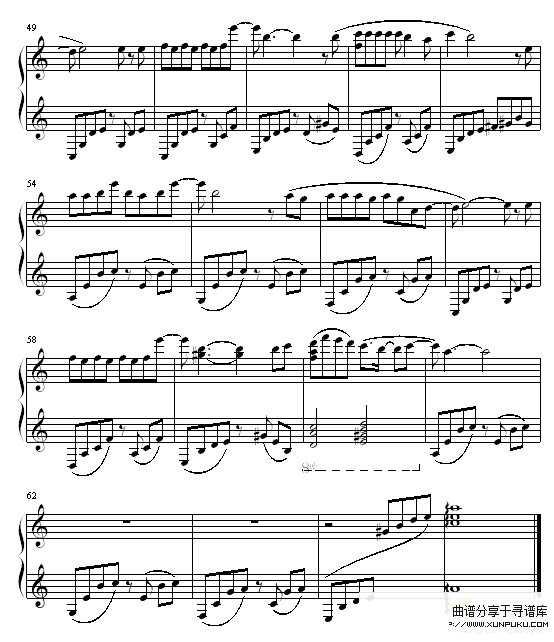 49
54
58
8va
62
曲谱分享于寻谱库
?://WWW.XUNPUKU.COM